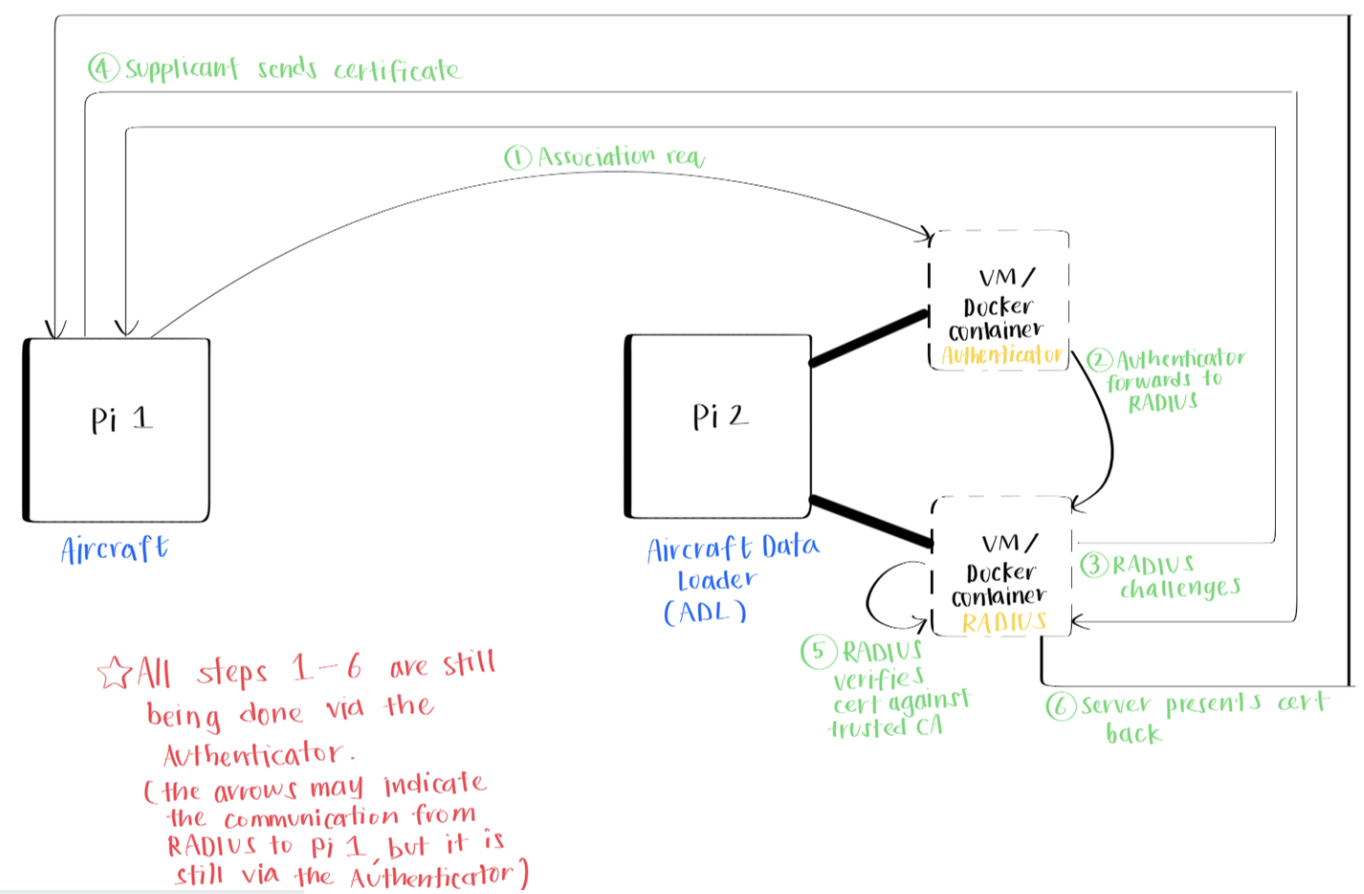 ④ Supplicant sends certificate
① Association req
VM/
Docker
container
Authenticator
② Authenticator
forwards to
RADIUS
Pi 1
Pi 2
Aircraft
Aircraft Data
Loader
(ADL)
VM/
Docker
container
RADIUS
③ RADIUS
challenges
⑤ RADIUS
verifies
cert against
trusted CA
⑥ Server presents cert
back
☆All steps 1-6 are still
being done via the
Authenticator.
(the arrows may indicate
the communication from
RADIUS to Pi 1, but it is
still via the Authenticator)